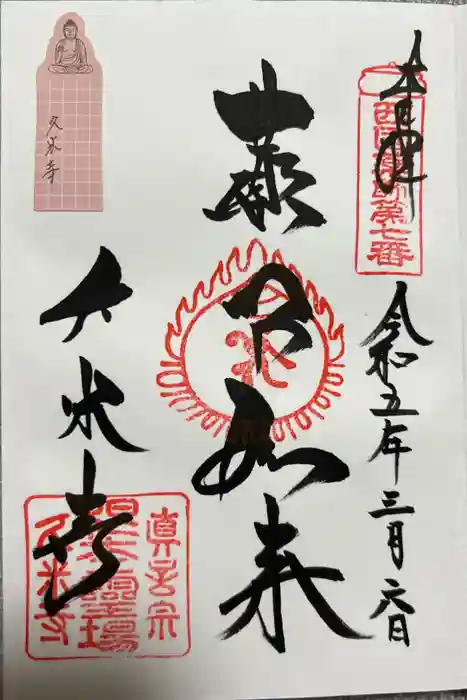 奉拝
西国薬師第七番
令和五年三月六日
薬師如来
久米寺
真言宗
久米寺
久米寺